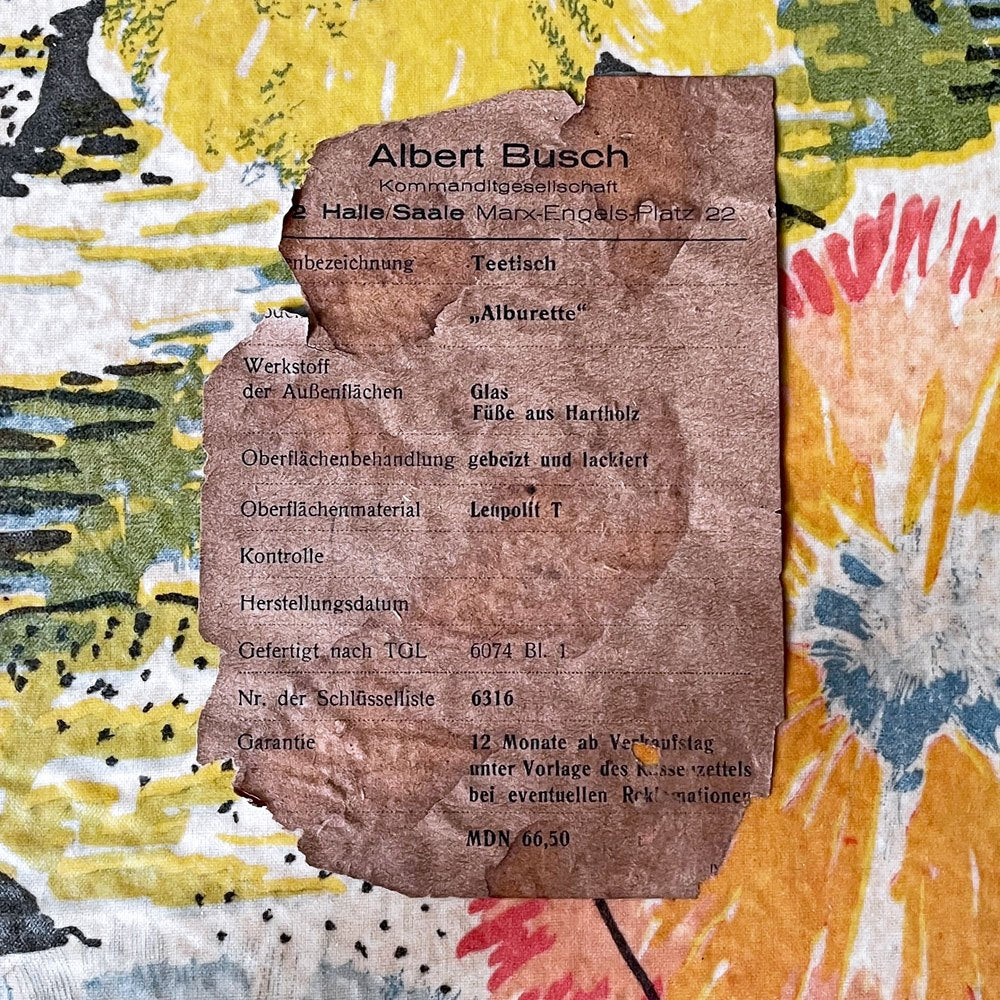 Albert Busch
Kommanditgesellschaft
2 Halle/Saale Marx-Engels-Platz 22
nbezeichnung Teetisch
„Alburette“
Werkstoff
der Außenflächen Glas
Füße aus Hartholz
Oberflächenbehandlung gebeizt und lackiert
Oberflächenmaterial Leupolit T
Kontrolle
Herstellungsdatum
Gefertigt nach TGL 6074 Bl. 1
Nr. der Schlüsselliste 6316
Garantie 12 Monate ab Verkaufstag
unter Vorlage des Kassenzettels
bei eventuellen Reklamationen
MDN 66,50